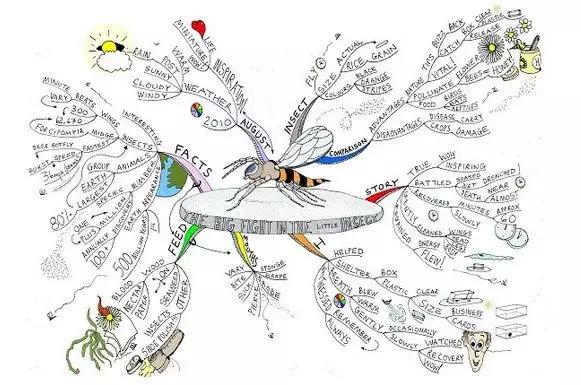 THE BIG FIGHT IN THE LITTLE INSECT
AUGUST
2010
WEATHER
RAIN
POST
SUNNY
CLOUDY
WINDY
WARM
INSPIRATION
MINIATURE
LIFE
WOW
INSECT
FLY
SIZE
ACTUAL
RICE GRAIN
COLOURS
BLACK
ORANGE
STRIPES
COMPARISON
ADVANTAGES
NATURE
VITAL!
BUZZ
BACK
CATCH
RELEASE
BOX
CLEAR
PLASTIC
POLLINATE
FLOWERS
BEES = HONEY
FOOD
BIRDS
REPTILES
DISADVANTAGES
DISEASE
CARRY
CROPS
DAMAGE
STORY
TRUE
WOW
INSPIRING
BATTLED
SOAKED
DRENCHED
DEATH
NEAR
ALMOST
RECOVERED
SLOWLY
MINUTES
APPROX
60
CLEANED
WINGS
LEGS
ENERGY
FLEW!
I
HELPED
SHELTER
BOX
PLASTIC
CLEAR
SIZE
BUSINESS
CARDS
BREATH
BLEW
WARM
GENTLY
OCCASIONALLY
SLOWLY
REMEMBER
ALWAYS
WATCHED
RECOVERY
WOW!
VARY
SPONGE
BITE
SUCK
PIERCE
FEED
ON
WOOD
BLOOD
NECTAR
PAPER
SEAWEED
INSECTS
OTHER
SHOE POLISH!
FACTS
INTERESTING
INSECTS
WINGS
BEATS
MINUTE
VARY
62,760
MIDGE
FORCIPOMYIA
FASTEST
DEER BOTFLY
SPEED
ANIMALS
GROUP
EARTH
LARGEST
80%
SPECIES
ONE
MILLION
PLUS
DISCOVERED
ANNUALLY
EARTH
APPEARANCE
500
MILLION
YEARS